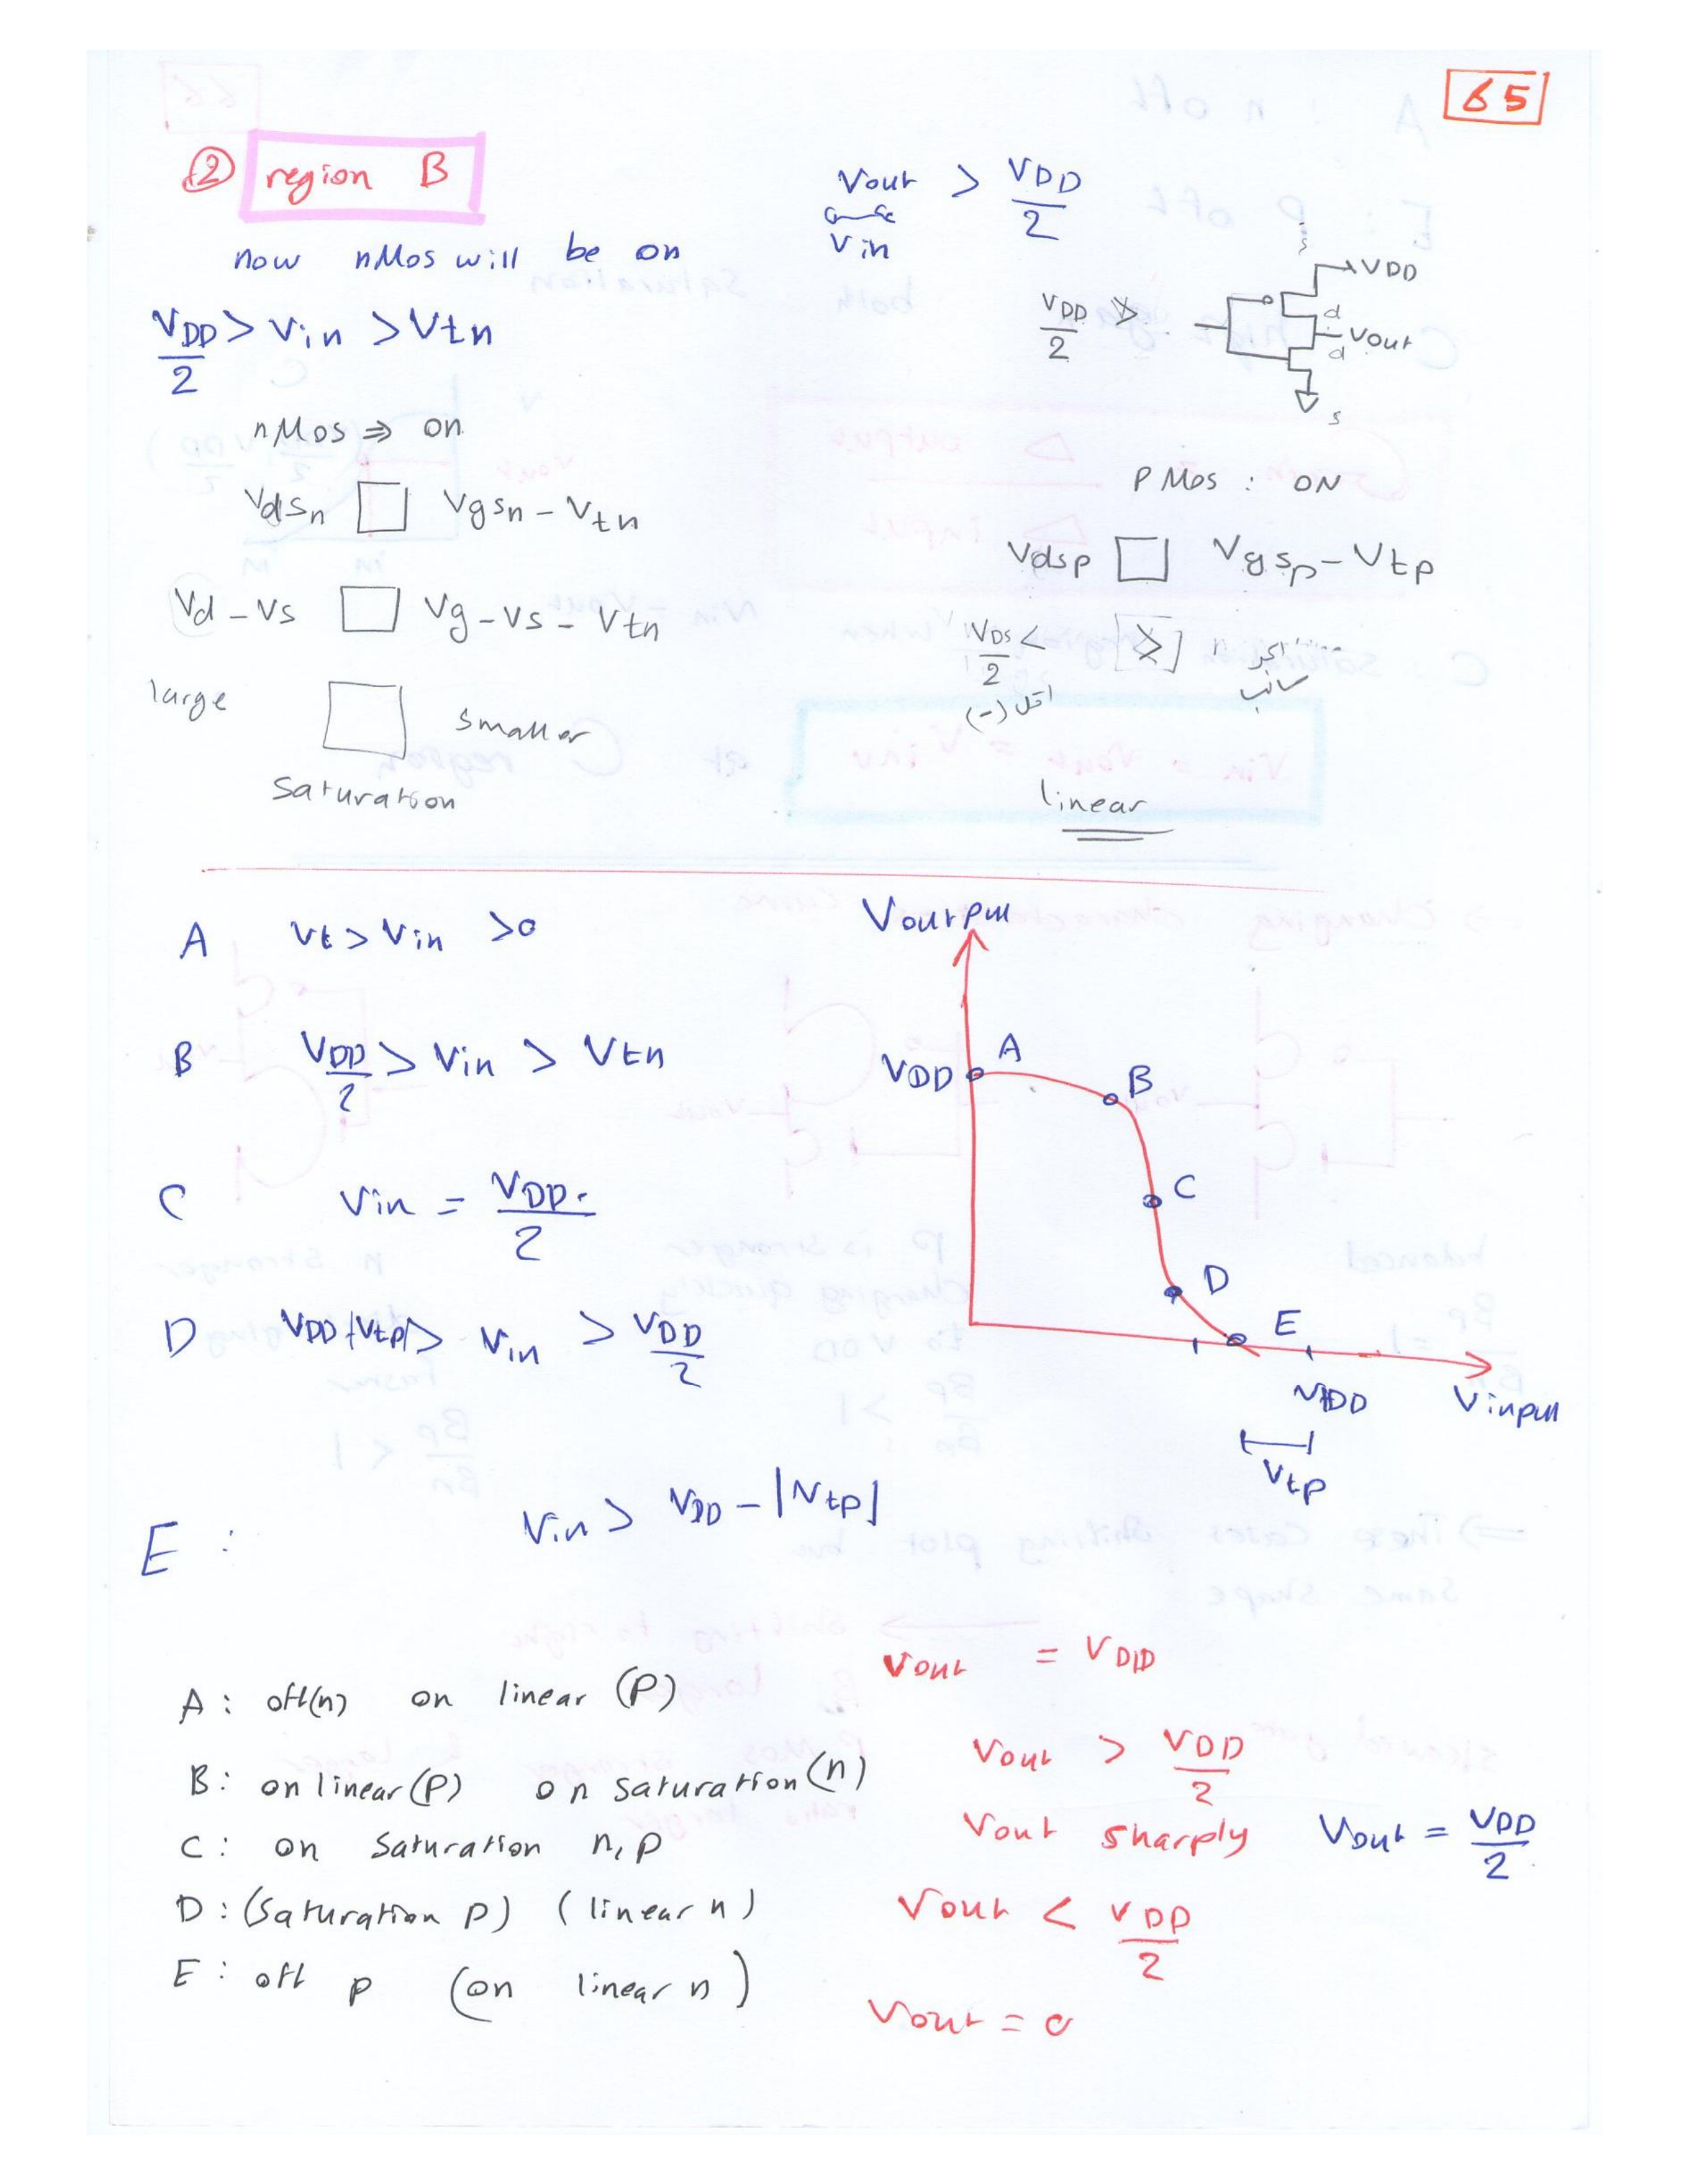 65
② region B
now nMos will be on
VDD/2 > Vin > Vtn
nMos ⇒ on
Vdsn □ Vgsn - Vtn
Vd - Vs □ Vg - Vs - Vtn
large □ smaller
Saturation
Vout > VDD/2
Vin
s
VDD
VDD/2 >
d
Vout
d
s
PMos : ON
Vdsp □ Vgsp - Vtp
linear
A Vt > Vin > 0
B VDD/2 > Vin > Vtn
C Vin = VDD/2
D VDD-|Vtp| > Vin > VDD/2
E : Vin > VDD - |Vtp|
Voutput
VDD A
B
C
D
E
VDD
Vinput
Vtp
A : off(n) on linear (P) Vout = VDD
B : on linear(P) on saturation(n) Vout > VDD/2
C : on Saturation n,p Vout sharply Vout = VDD/2
D : (Saturation p) (linear n) Vout < VDD/2
E : off p (on linear n) Vout = 0